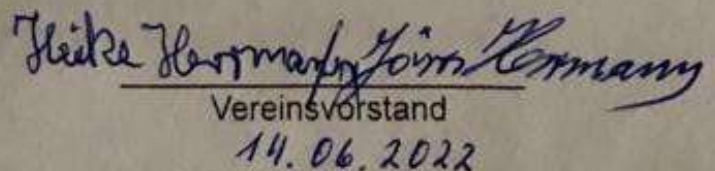 Heike Herrmann Jörn Herrmann
Vereinsvorstand
14.06.2022